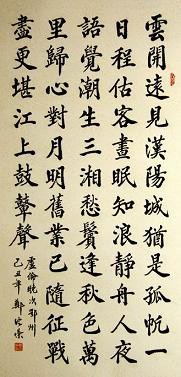 雲開遠見漢陽城猶是孤帆一
日程估客晝眠知浪靜舟人夜
語覺潮生三湘愁鬢逢秋色萬
里歸心對月明舊業已隨征戰
盡更堪江上鼓鼙聲
盧倫晚次鄂州
己丑年鄭